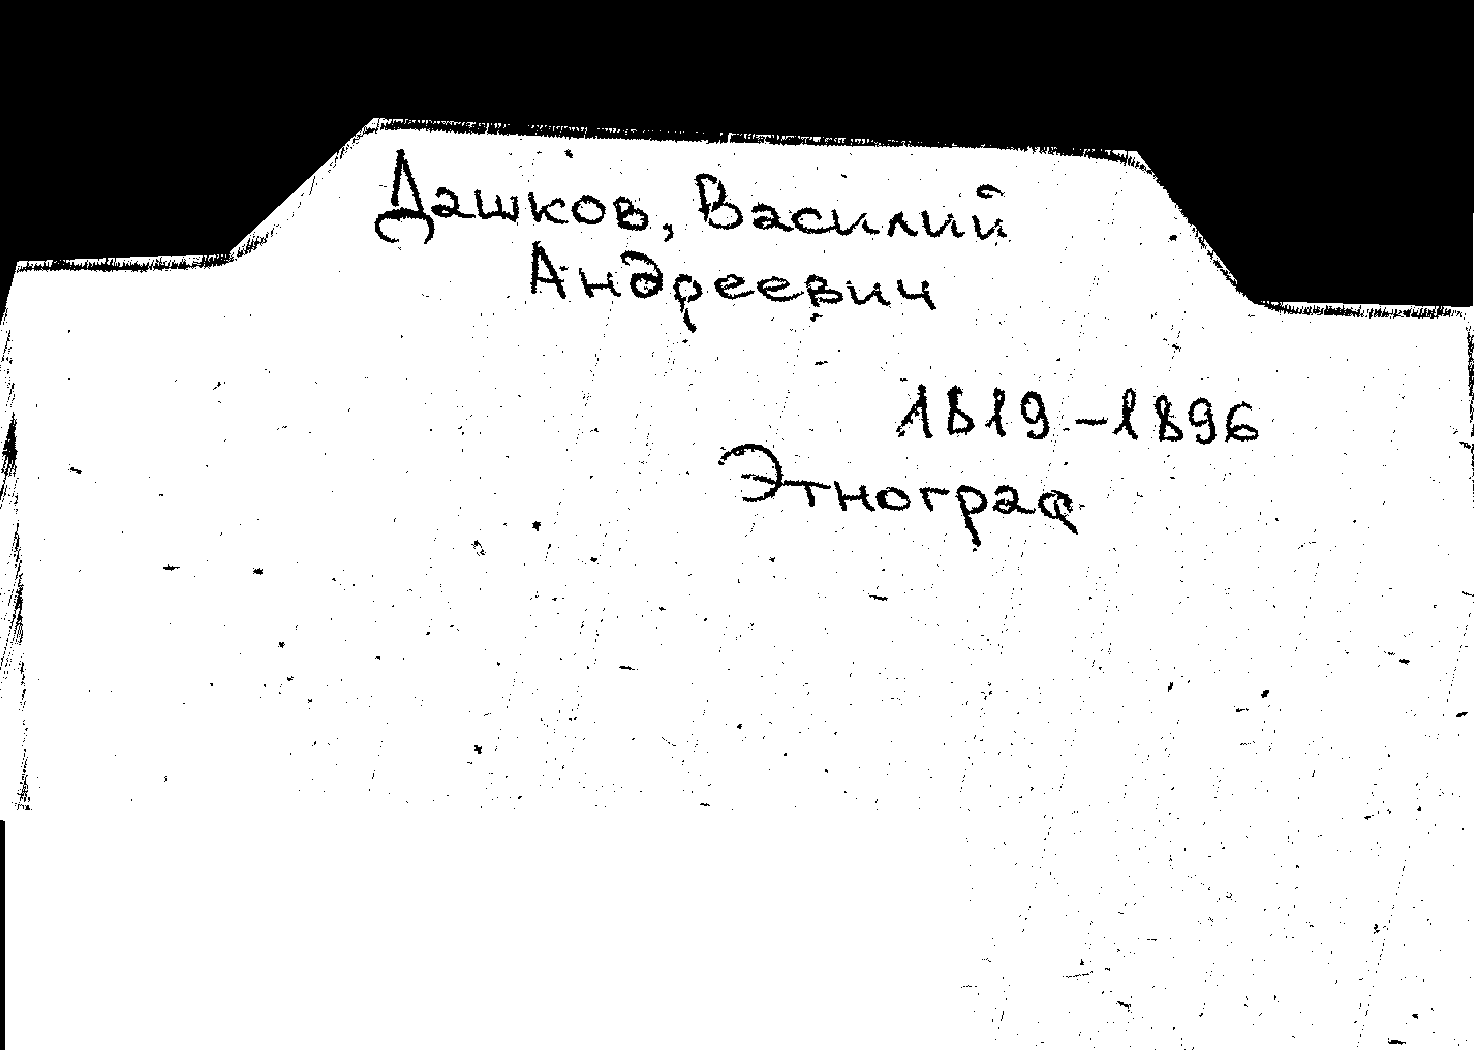 Дашков, Василий
Андреевич
1819-1896
Этнограф